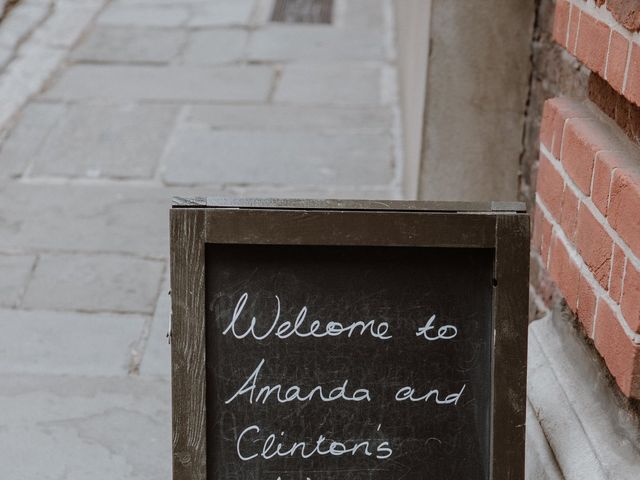 Welcome to
Amanda and
Clinton's